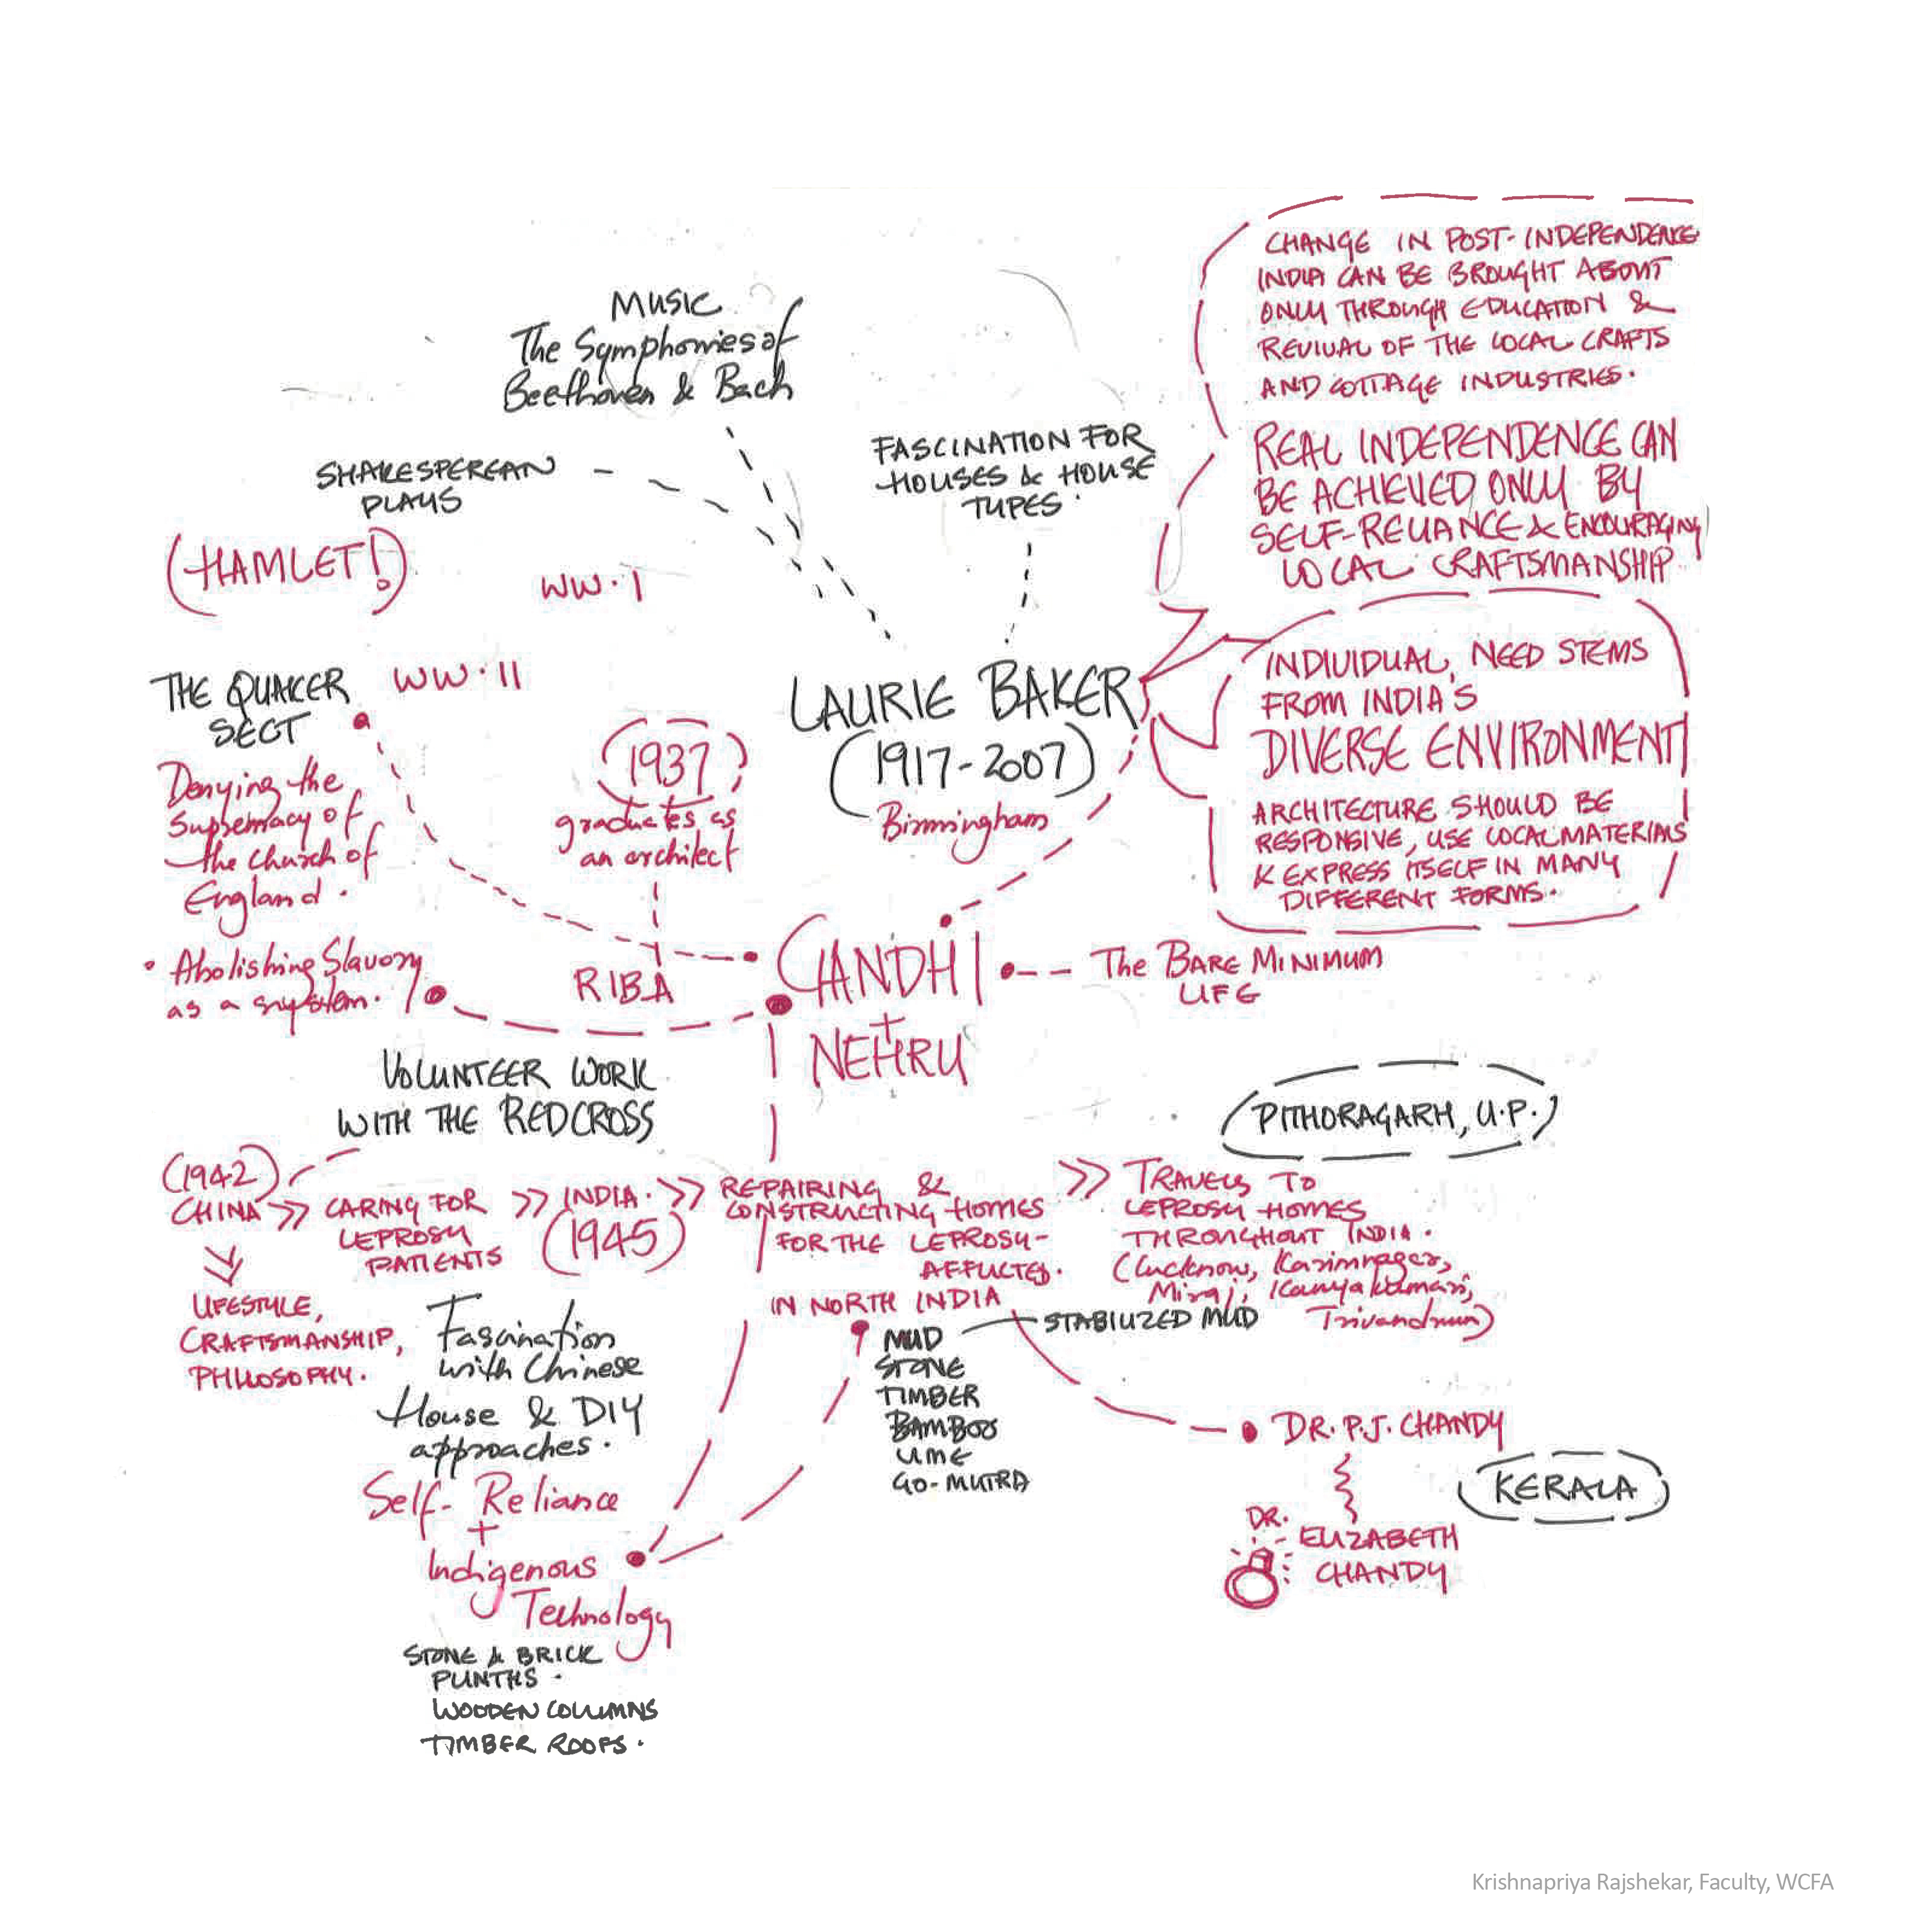 MUSIC
The Symphonies of
Beethoven & Bach
SHAKESPEREAN
PLAYS
(HAMLET!)
FASCINATION FOR
HOUSES & HOUSE
TYPES.
CHANGE IN POST-INDEPENDENCE
INDIA CAN BE BROUGHT ABOUT
ONLY THROUGH EDUCATION &
REVIVAL OF THE LOCAL CRAFTS
AND COTTAGE INDUSTRIES.
REAL INDEPENDENCE CAN
BE ACHIEVED ONLY BY
SELF-RELIANCE & ENCOURAGING
LOCAL CRAFTSMANSHIP.
WW.I
WW.II
THE QUAKER
SECT
Denying the
Supremacy of
the Church of
England.
• Abolishing Slavery
as a system.
(1937)
graduates as
an architect
RIBA
LAURIE BAKER
(1917-2007)
Birmingham
INDIVIDUAL NEED STEMS
FROM INDIA'S
DIVERSE ENVIRONMENT
ARCHITECTURE SHOULD BE
RESPONSIVE, USE LOCAL MATERIALS
& EXPRESS ITSELF IN MANY
DIFFERENT FORMS.
GANDHI
+
NEHRU
The BARE MINIMUM
LIFE
VOLUNTEER WORK
WITH THE RED CROSS
(1942)
CHINA >>
CARING FOR
LEPROSY
PATIENTS
>> INDIA. >>
(1945)
REPAIRING &
CONSTRUCTING HOMES
FOR THE LEPROSY-
AFFLICTED.
IN NORTH INDIA
(PITHORAGARH, U.P.)
>> TRAVELS TO
LEPROSY HOMES
THROUGHOUT INDIA.
(Lucknow, Karimnagar,
Miraj, Kanyakumari,
Trivandrum)
LIFESTYLE,
CRAFTSMANSHIP,
PHILOSOPHY.
Fascination
with Chinese
House & DIY
approaches.
Self-Reliance
+
Indigenous
Technology
STONE & BRICK
PLINTHS.
WOODEN COLUMNS
TIMBER ROOFS.
MUD
STONE
TIMBER
BAMBOO
LIME
GO-MUTRA
STABILIZED MUD
DR. P.J. CHANDY
KERALA
DR.
ELIZABETH
CHANDY
Krishnapriya Rajshekar, Faculty, WCFA